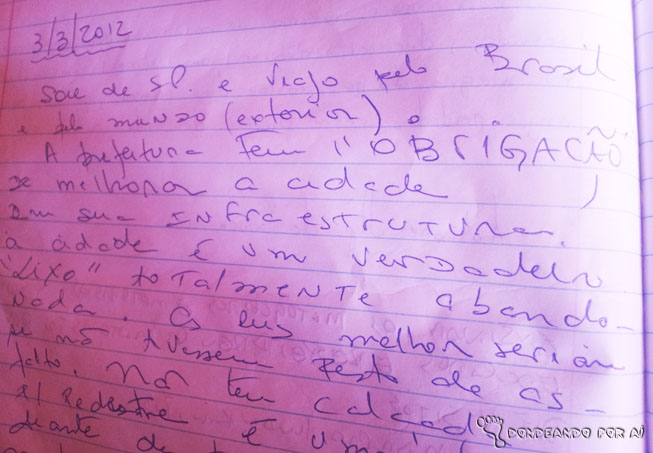 3/3/2012
Sou de S.P. e viajo pelo Brasil
e pelo munDO (exterior).
A prefeitura tem "OBRIGAÇÃO"
de melhorar a cidade,
em sua INFRAESTRUTURA.
a cidade é um verdadeiro
"Lixo" totalmente abando-
nada. As melhor seriam
se não tivessem Resto de as-
falto. Não tem calcada
p/ Pedestre é uma
diante de
DONDEANDO POR AÍ